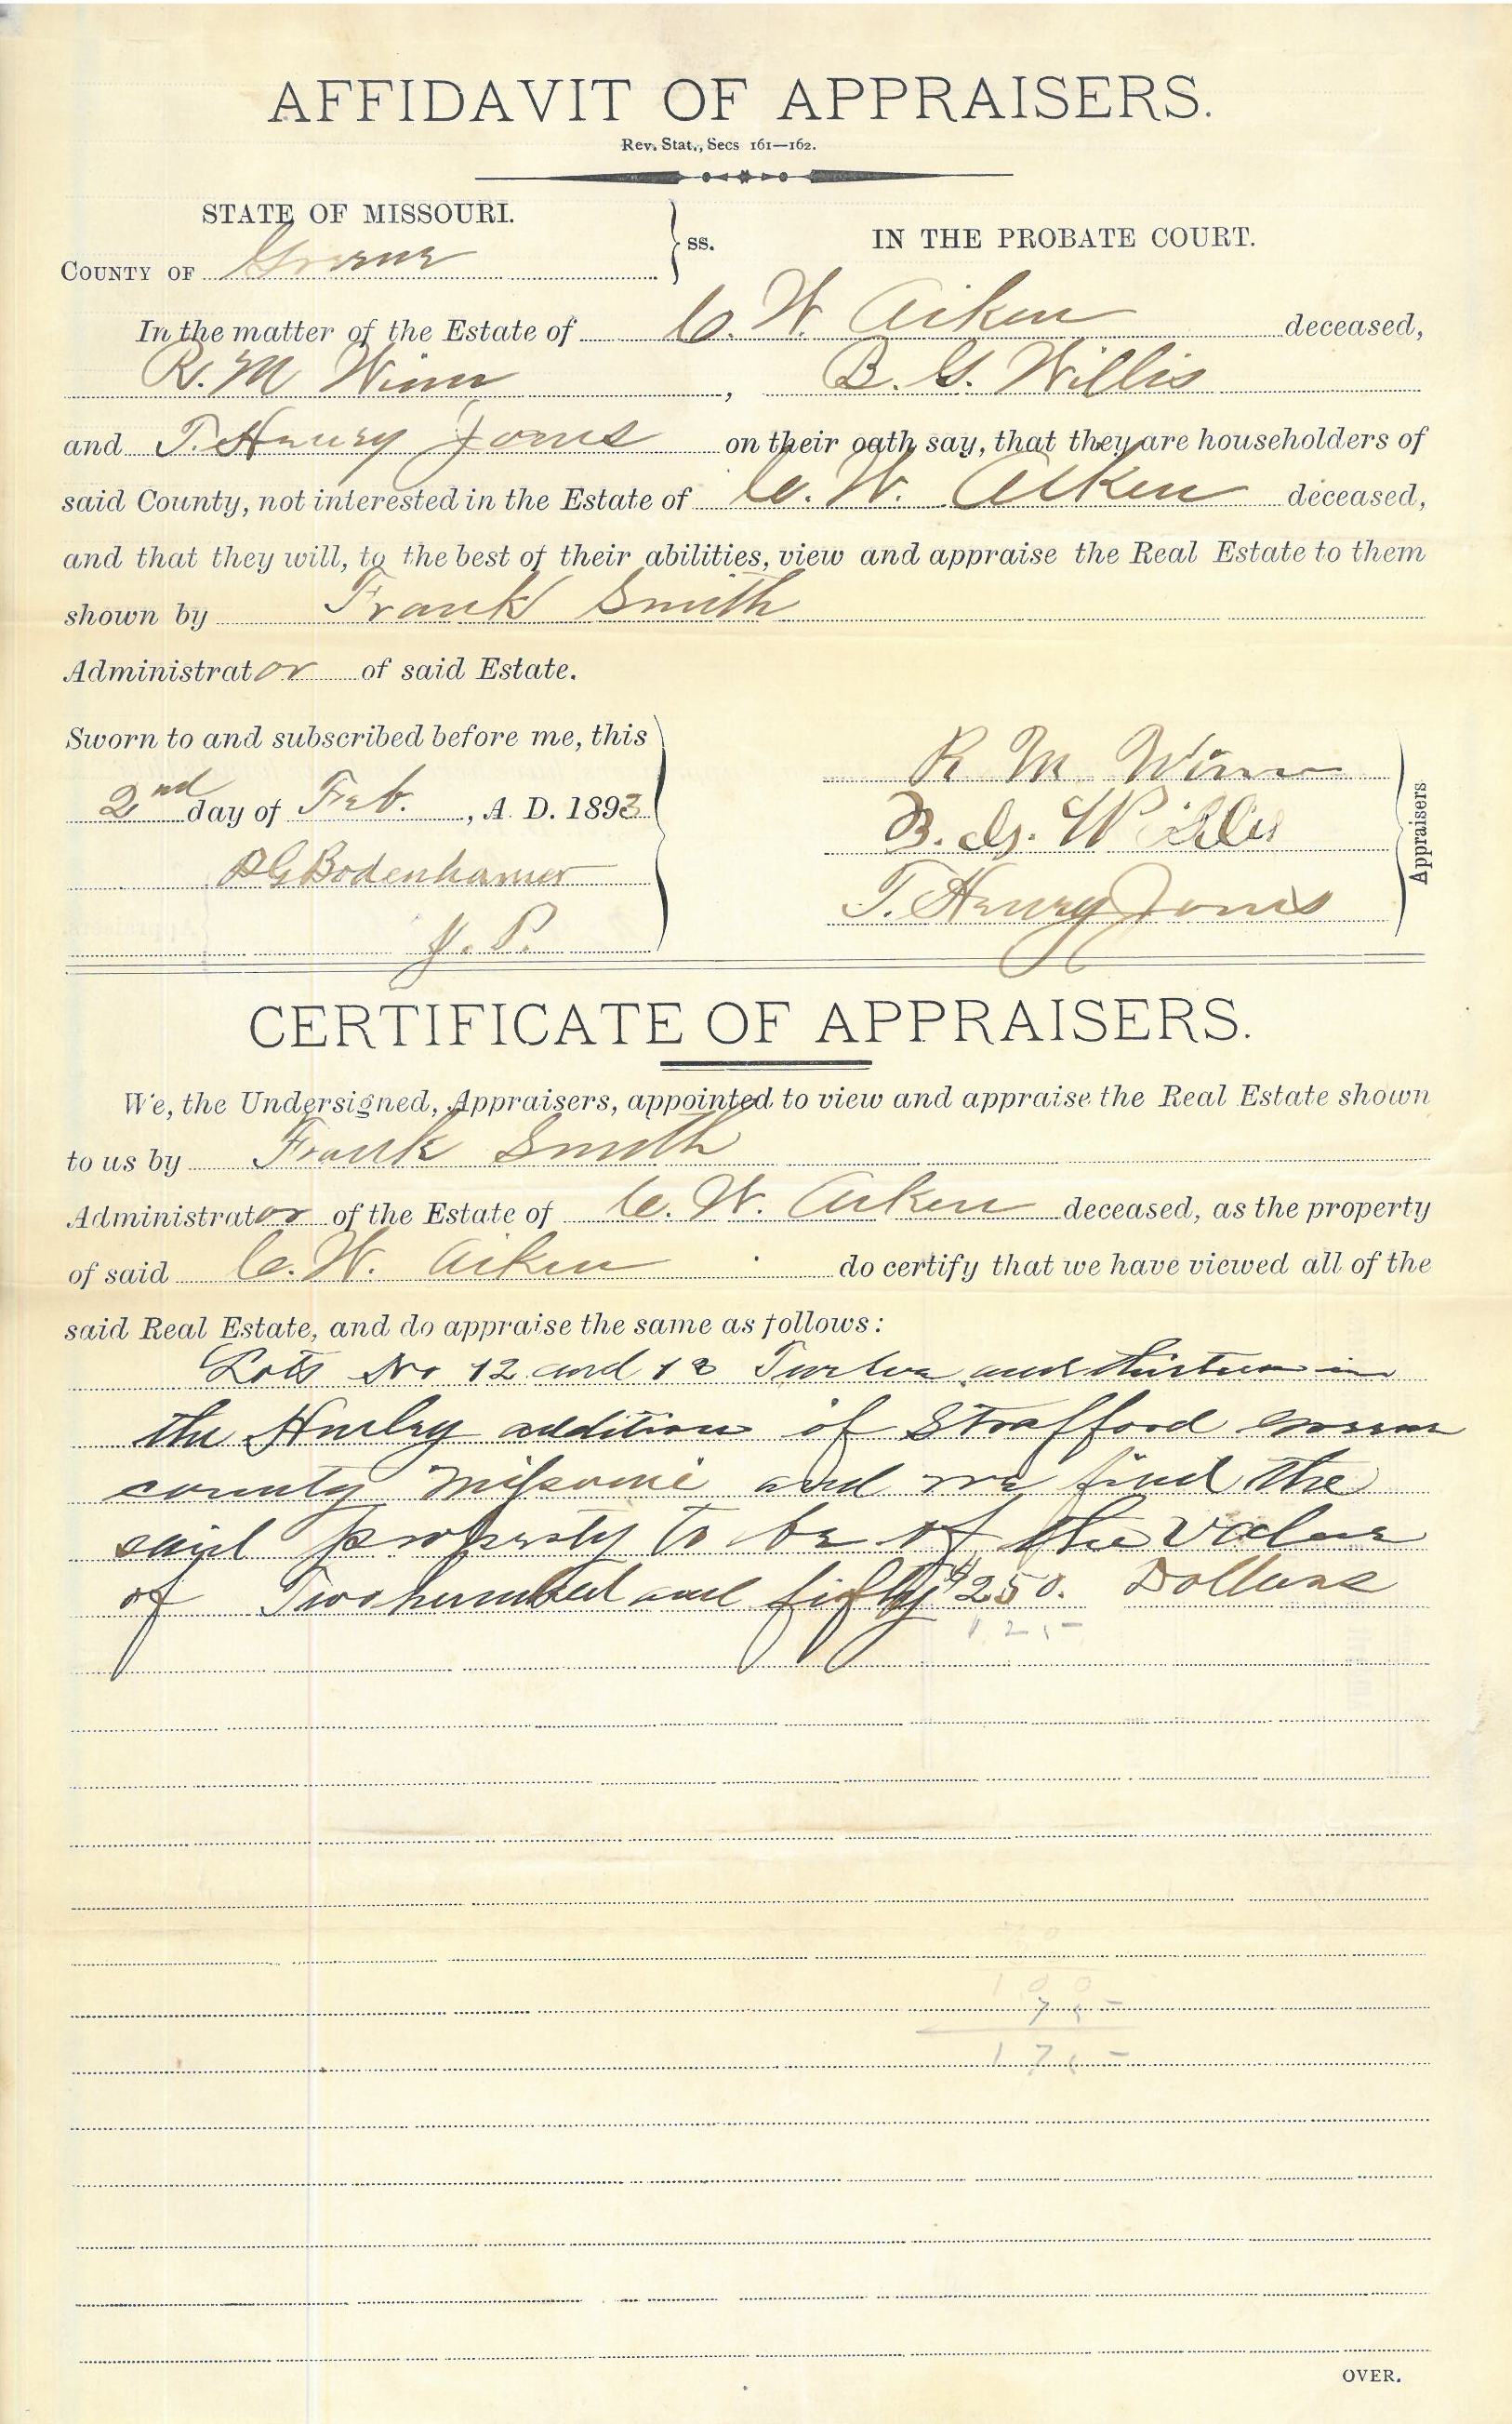 AFFIDAVIT OF APPRAISERS.
Rev. Stat., Secs 161—162.
STATE OF MISSOURI.
COUNTY OF Greene
ss.
IN THE PROBATE COURT.
In the matter of the Estate of C. W. Aiken deceased,
R. M Winn, B. G. Willis
and T. Henry Jones on their oath say, that they are householders of
said County, not interested in the Estate of C. W. Aiken deceased,
and that they will, to the best of their abilities, view and appraise the Real Estate to them
shown by Frank Smith
Administrator of said Estate.
Sworn to and subscribed before me, this
2nd day of Feb., A. D. 1893
BG Bodenhamer
J. P.
R M Winn
B. G. Willis
T. Henry Jones
Appraisers
CERTIFICATE OF APPRAISERS.
We, the Undersigned, Appraisers, appointed to view and appraise the Real Estate shown
to us by Frank Smith
Administrator of the Estate of C. W. Aiken deceased, as the property
of said C. W. Aiken do certify that we have viewed all of the
said Real Estate, and do appraise the same as follows:
Lots No 12 and 13 Twelve and thirteen in
the Hurley addition of Strafford Greene
county Missouri and we find the
said property to be of the value
of Two hundred and fifty $250. Dollars
100
75
175
OVER.